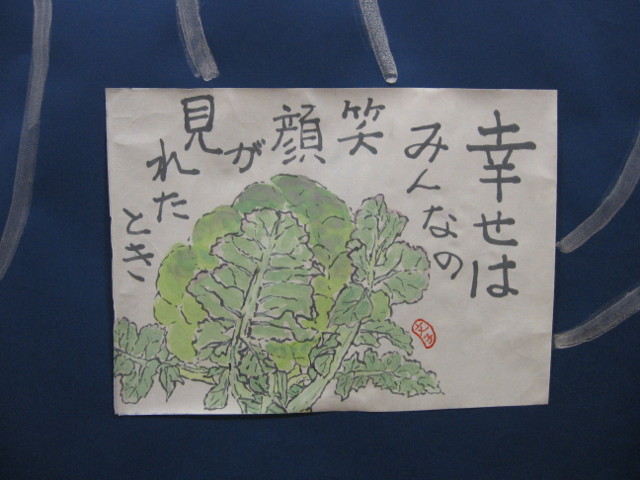 幸せは
みんなの
笑顔が
見れた
とき